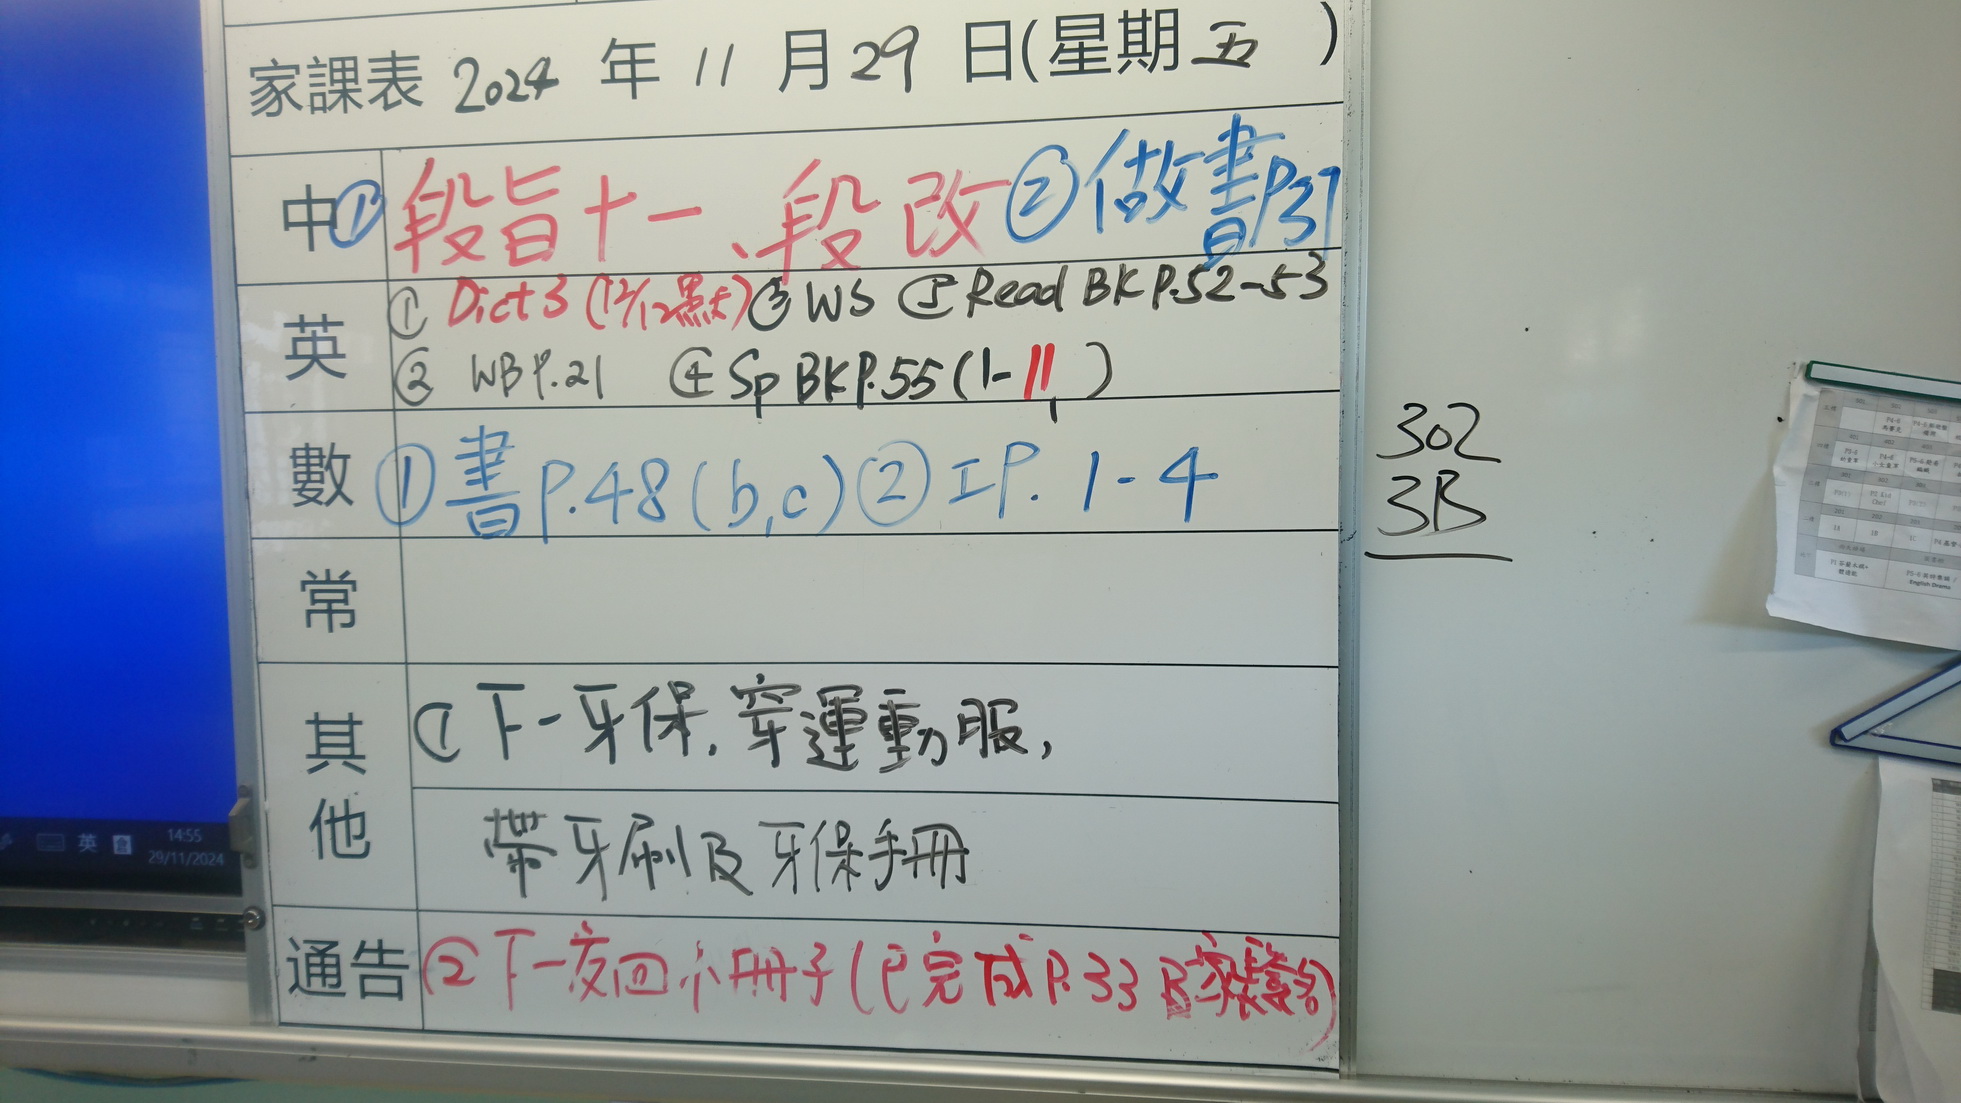 家課表 2024 年 11 月 29 日(星期五)
中 ① 段旨十一、段改 ② 做書P37
英 ① Dict 3 (12/12默) ③ WS ⑤ Read BK P.52-53
② WB P.21 ④ Sp BK P.55 (1-11)
數 ① 書P.48 (b,c) ② IP. 1-4
常
其他 ① 下一牙保,穿運動服,
帶牙刷及牙保手冊
通告 ② 下一交回小冊子(已完成P.33 及家長簽名)
302
3B
英
14:55
29/11/2024
English Drama